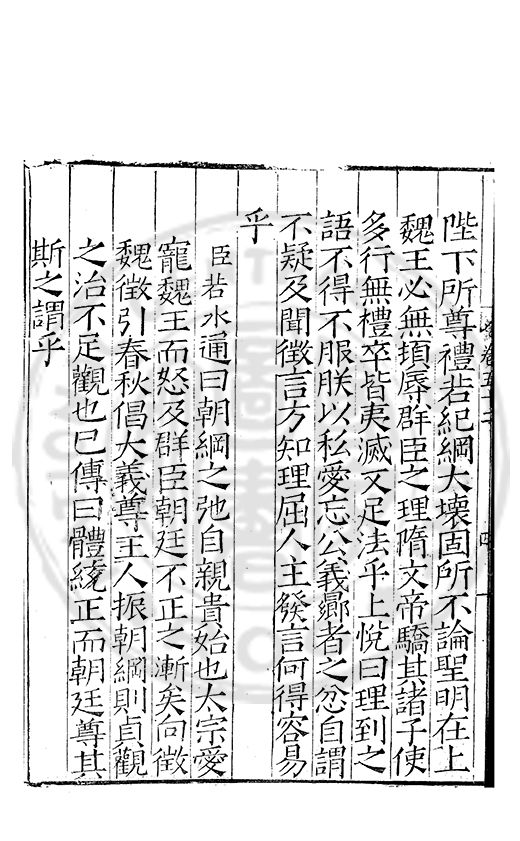 陛下所尊禮若紀綱大壞固所不論聖明在上
魏王必無頊辱群臣之理隋文帝驕其諸子使
多行無禮卒皆夷滅又足法乎上悅曰理到之
語不得不服朕以私愛忘公義曏者之忿自謂
不疑及聞徵言方知理屈人主發言何得容易
乎
臣若水通曰朝綱之弛自親貴始也太宗愛
寵魏王而怒及群臣朝廷不正之漸矣向徵
魏徵引春秋倡大義尊王人振朝綱則貞觀
之治不足觀也已傳曰體統正而朝廷尊其
斯之謂乎